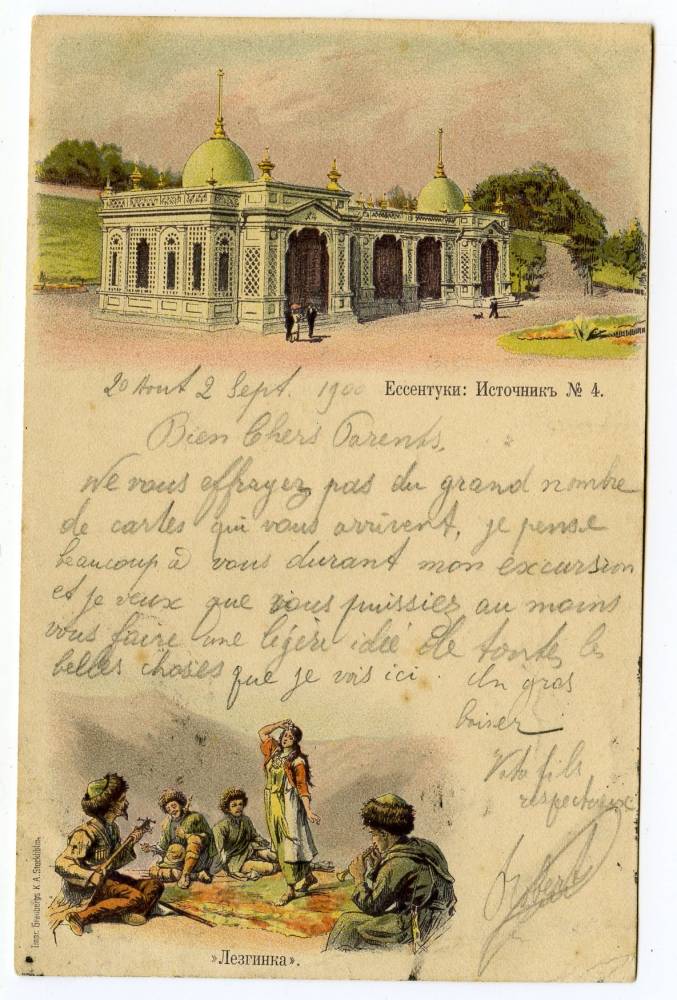 Ессентуки: Источникъ № 4.
20 Aout 2 Sept. 1900
Bien Chers Parents,
Ne vous effrayez pas du grand nombre
de cartes qui vous arrivent, je pense
beaucoup à vous durant mon excursion
et je veux que vous puissiez au moins
vous faire une légère idée de toutes les
belles choses que je vois ici. Un gros
baiser
Votre fils
respectueux
»Лезгинка«.